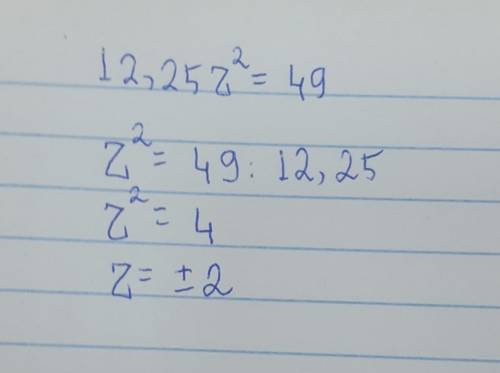 12,25z² = 49
z² = 49 : 12,25
z² = 4
z = ± 2